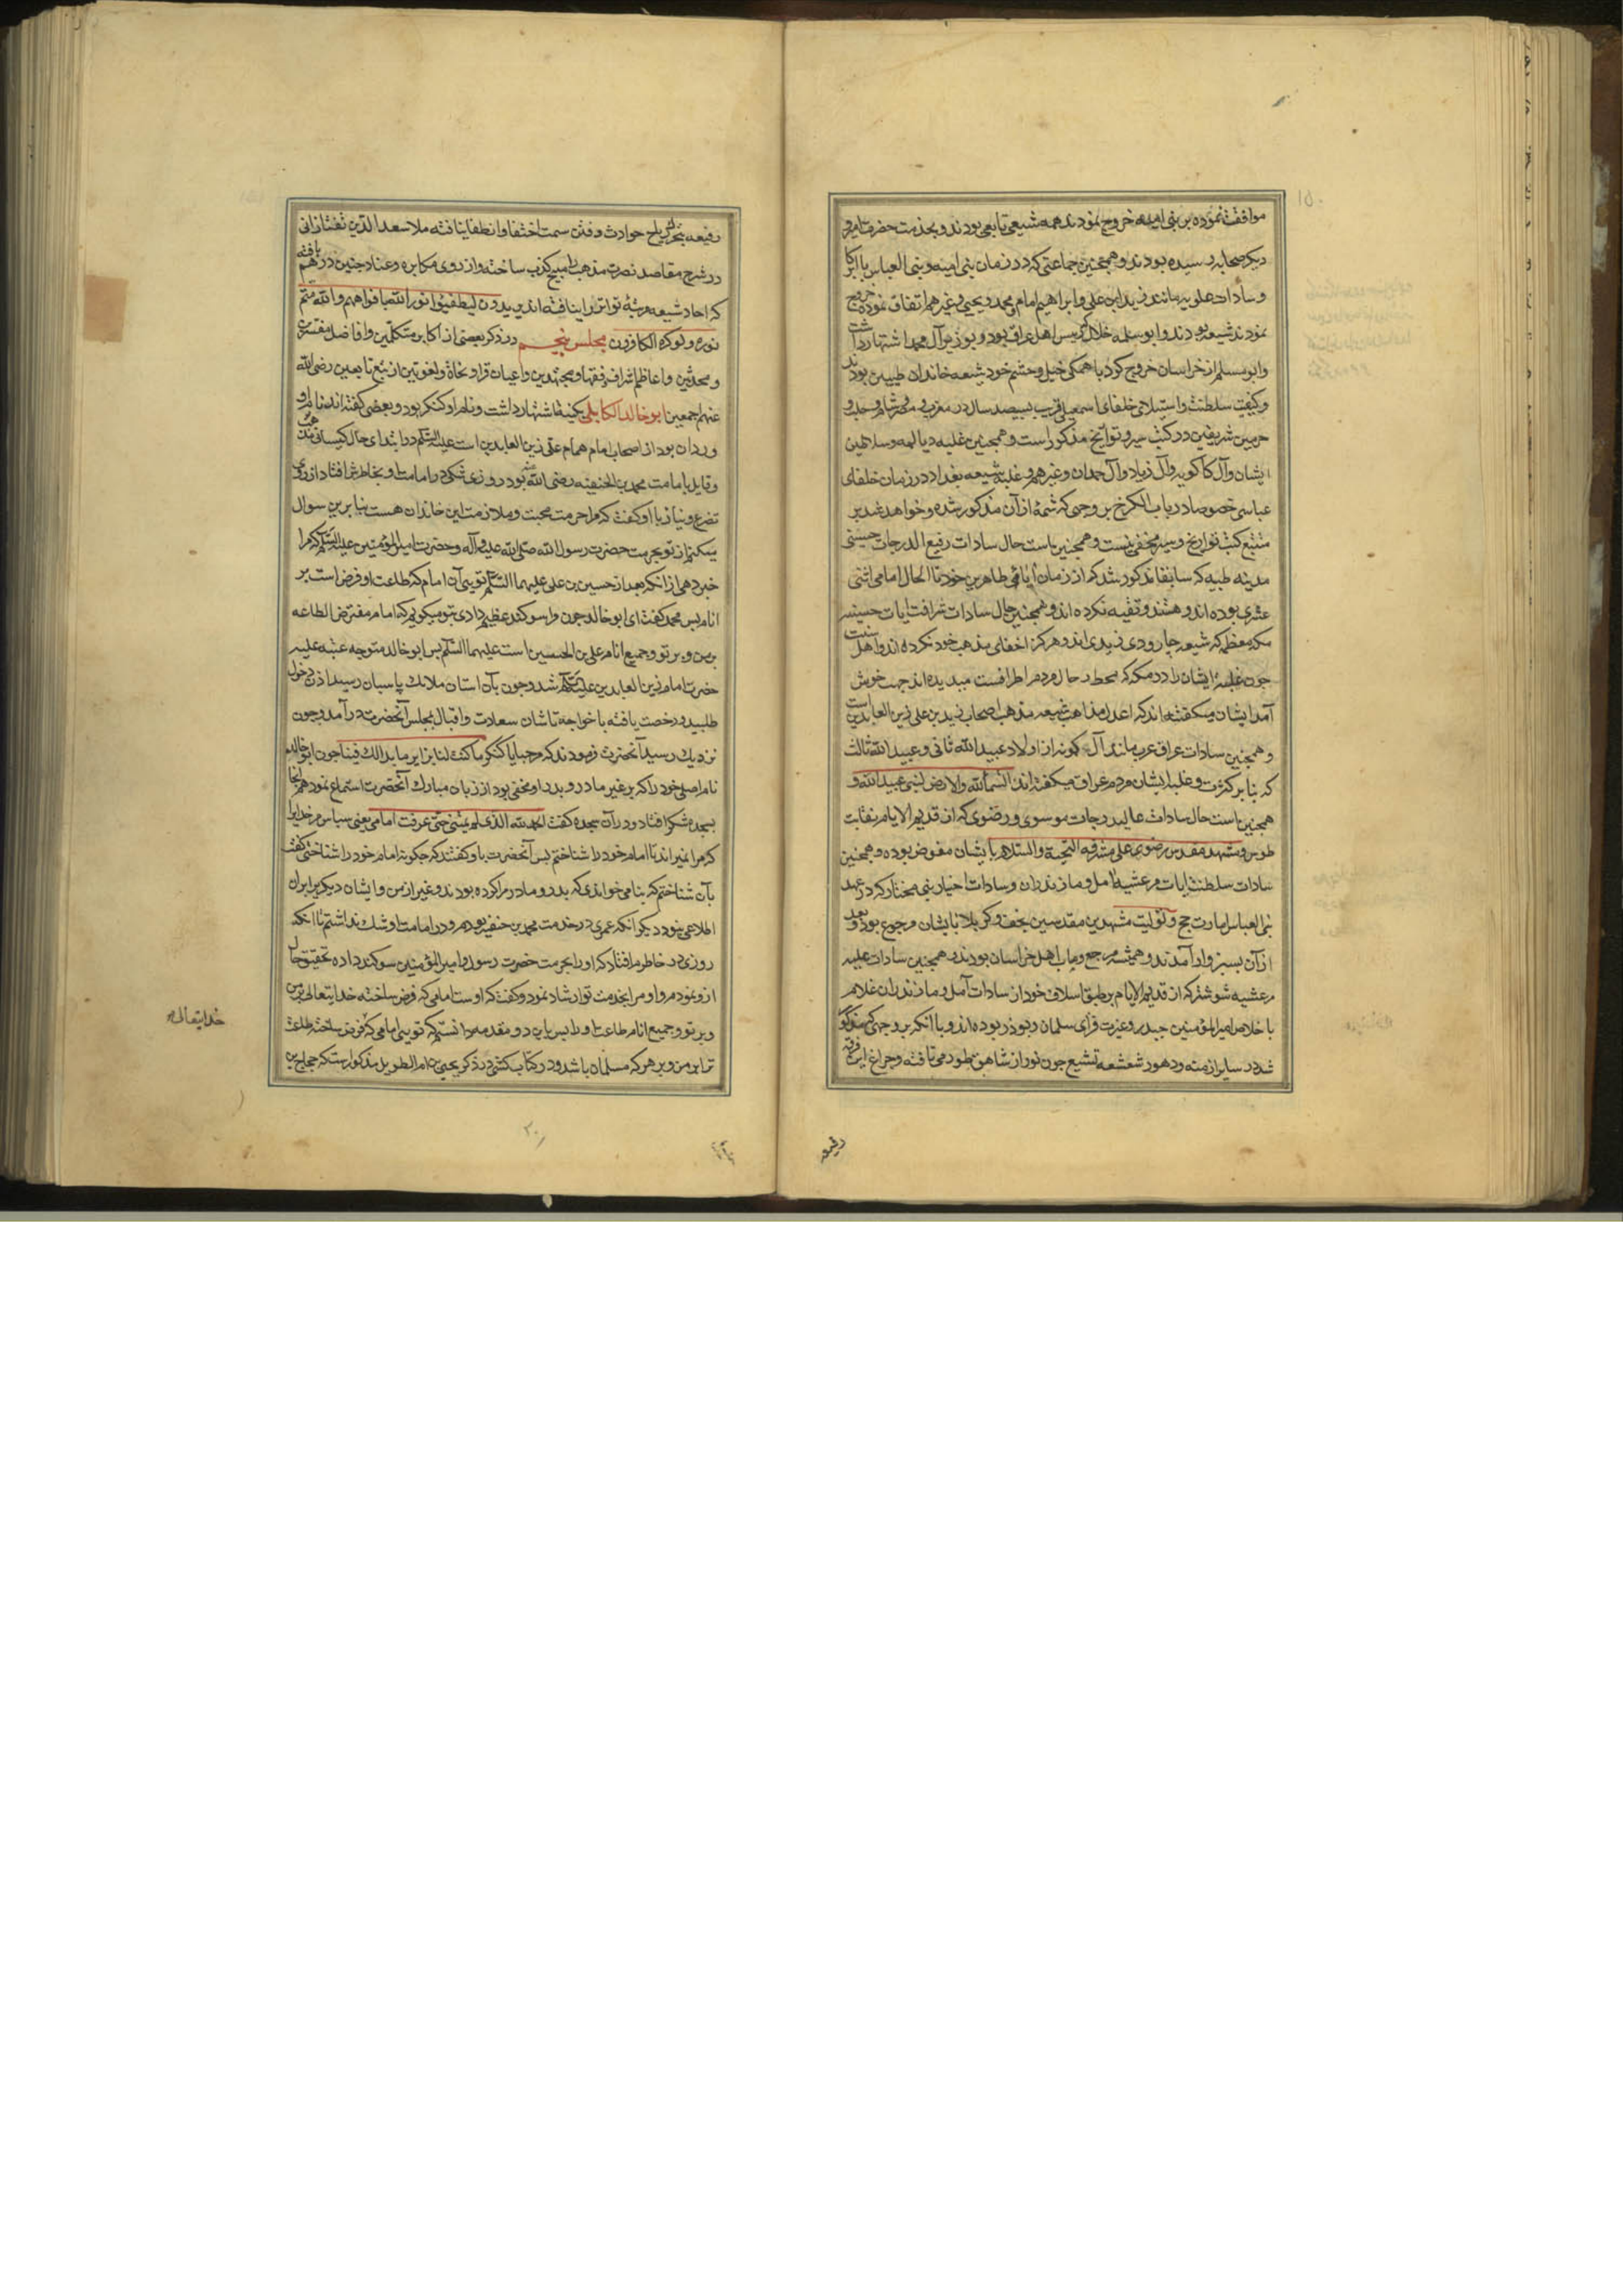 ۱۵۰
موافقت نموده بر بنی امیه خروج نمودند همه شیعی تابعی بودند و بخدمت حضرت امیر و
دیکر صحابه رسیده بودند و همچنین جماعتی که در زمان بنی امیه و بنی العباس با اکابر
و سادات علویه مانند زید ابن علی و ابراهیم امام و محمد و یحیی و غیرهم اتفاق نموده خروج
نمودند شیعه بودند و ابو سلمه خلال که رییس اهل عراق بود و بوزیر آل محمد اشتهار داشت
و ابو مسلم از خراسان خروج کرد با همکی خیل و حشم خود شیعه خاندان طیبین بودند
و کیفیت سلطنت و استیلای خلفای اسمعیلی قریب بسیصد سال در مغرب و مصر و شام و حلب و
حرمین شریفین در کتب سیر و تواریخ مذکور است و همچنین غلبه دیالمه و سلاطین
ایشان و آل کاکویه و آل زیاد و آل حمدان و غیرهم و غلبه شیعه بغداد در زمان خلفای
عباسی خصوصا در باب الکرخ بر وجهی که شمهٔ از آن مذکور شده و خواهد شد بر
متتبع کتب تواریخ و سیر مخفی نیست و همچنین است حال سادات رفیع الدرجات حسینی
مدینه طیبه که سابقا مذکور شد که از زمان آبای طاهرین خود تا الحال امامی اثنی
عشری بوده اند و هستند و تقیه نکرده اند و همچنین حال سادات شرافت ایات حسینیه
مکه معظمه که شیعه جارودی زیدی اند و هرکز اخفای مذهب خود نکرده اند و اهل سنت
چون غلبهٔ ایشان را در مکه که محط رحال مردم اطرافست میدیده اند جهت خوش
آمد ایشان میکفته اند که اعدل مذاهب شیعه مذهب اصحاب زید بن علی زین العابدین است
و همچنین سادات عراق عرب مانند آل کمونه از اولاد عبید الله ثانی و عبید الله ثالث
که بنا بر کثرت و غلبه ایشان مردم عراق میکفته اند السماء لله والارض لبنی عبید الله و
همچنین است حال سادات عالیدرجات موسوی و رضوی که از قدیم الایام نقابت
طوس و مشهد مقدس رضوی علی مشرفه التحیة والسلام بایشان مفوض بوده و همچنین
سادات سلطنت ایات مرعشیه آمل و مازندران و سادات اخیار بنی مختار که در عهد
بنی العباس امارت حج و تولیت مشهدین مقدسین نجف و کربلا بایشان مرجوع بود و بعد
از آن بسبزوار آمدند و همیشه مرجع و مآب اهل خراسان بودند و همچنین سادات علیه
مرعشیه شوشتر که از قدیم الایام بر طبق اسلاف خود از سادات آمل و مازندران غلام
با خلاص امیر المؤمنین حیدر و عزت فزای سلمان و بوذر بوده اند و با انکه بر وجهی که مذکور
شد در سایر ازمنه و دهور شعشعه تشیع چون نور از شاهق طور می تافته و چراغ این فرقه
رفیعه
رفیعه بتحریک ریاح حوادث و فتن سمت اختفا و انطفا نیافته ملا سعد الدین تفتازانی
در شرح مقاصد نصرت مذهب را مبیح کذب ساخته و از روی مکابره و عناد چنین در هم بافته
که احاد شیعه مرتبهٔ تواتر را نیافته اند یریدون لیطفئوا نور الله بافواههم والله متم
نوره ولو کره الکافرون مجلس پنجم در ذکر بعضی از اکابر متکلمین و افاضل مفسرین
و محدثین و اعاظم اشراف فقها و مجتهدین و اعیان قرا و نحاة و لغویین از تبع تابعین رضی الله
عنهم اجمعین ابو خالد الکابلی بکنیه اشتهار داشت و نام او کنکر بود و بعضی کفته اند نام او
وردان بود از اصحاب امام همام علی زین العابدین است علیه السلم در ابتدای حال کیسانی مذهب
و قایل بامامت محمد بن الحنفیه رضی الله عنه بود روزی شکی در امامت او بخاطرش افتاد از روی
تضرع و نیاز با او کفت که مرا حرمت محبت و ملازمت این خاندان هست بنا برین سوال
میکنم از تو بحرمت حضرت رسول الله صلی الله علیه و آله و حضرت امیر المؤمنین علیه السلم که مرا
خبر دهی از انکه بعد از حسین بن علی علیهما السلم تویی آن امام که طاعت او فرض است بر
انام پس محمد کفت ای ابو خالد چون مرا سوکند عظیم دادی بتو میکویم که امام مفترض الطاعه
بر من و بر تو و جمیع انام علی بن الحسین است علیهما السلم پس ابو خالد متوجه عتبه علیه
حضرت امام زین العابدین علیه السلم شد و چون بآن استان ملایک پاسبان رسید اذن دخول
طلبید و رخصت یافته با خواجه تاشان سعادت و اقبال بمجلس آنحضرت در آمد و چون
نزدیک رسید آنحضرت فرمودند که مرحبا یا کنکر ما کنت لنا بزایر ما بدا لک فینا چون ابو خالد
نام اصلی خود را که بر غیر مادر و پدر او مخفی بود از زبان مبارک آنحضرت استماع نمود هم انجا
بسجده شکر افتاد و در آن سجده کفت الحمد لله الذی لم یمتنی حتی عرفت امامی یعنی سپاس مر خدایرا
که مرا نمیراند تا امام خود را شناختم پس آنحضرت باو کفتند که چکونه امام خود را شناختی کفت
بآن شناختم که بنامی خواندی که پدر و مادر مرا کرده بودند و غیر از من و ایشان دیکریرا بر آن
اطلاعی نبود دیکر انکه عمری در خدمت محمد بن حنفیه بودم و در امامت او شک نداشتم تا انکه
روزی در خاطرم افتاد که او را بحرمت حضرت رسول و امیر المؤمنین سوکند داده تحقیق حال
ازو نمودم و او مرا بخدمت تو ارشاد نمود و کفت که اوست امامی که فرض ساخته خدایتعالی بر من
و بر تو و جمیع انام طاعت او را پس باین دو مقدمه دانستم که تویی امامی که فرض ساخته طاعت
ترا بر من و بر هر که مسلمان باشد و در کتاب کشی در ذکر یحیی بن ام الطویل مذکور است که حجاج بن
خدایتعالی